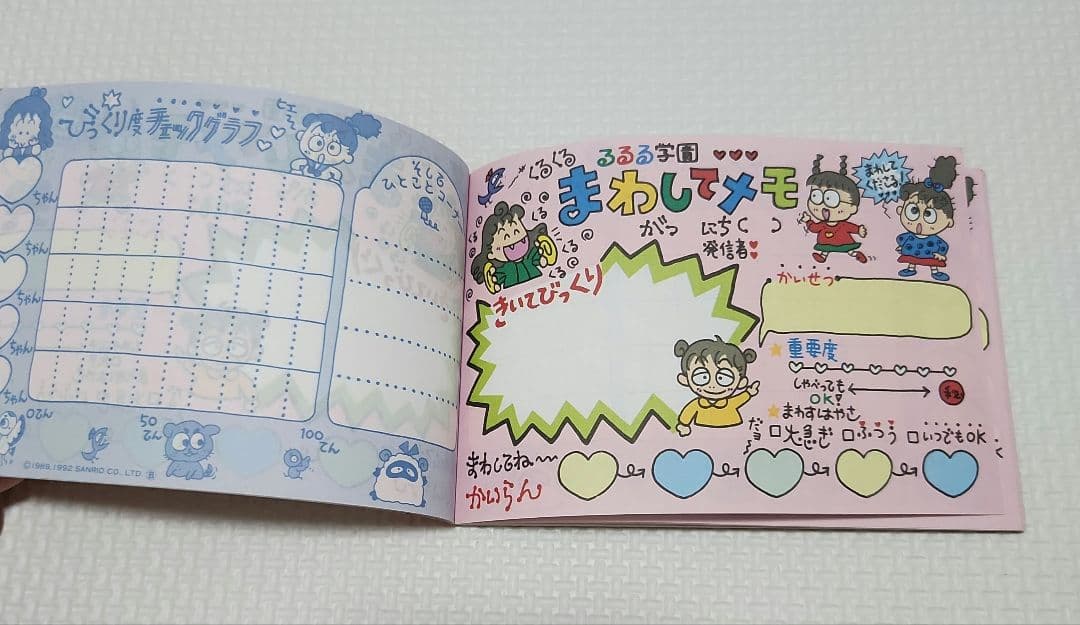 びっくり度チェックグラフ
ヒエ〜
そして
ひとことコーナー
ちゃん
ちゃん
ちゃん
ちゃん
ちゃん
0てん
50てん
100てん
©1989, 1992 SANRIO CO., LTD.
くるくる
るるる学園
まわしてメモ
がつ にち( )
発信者
まわしてくださる
くる
くる
くる
くる
くる
きいてびっくり
かいせつ
重要度
しゃべってもOK!
秘
まわすはやさ
だヨ
大急ぎ ふつう いつでもOK
まわしてね〜
かいらん